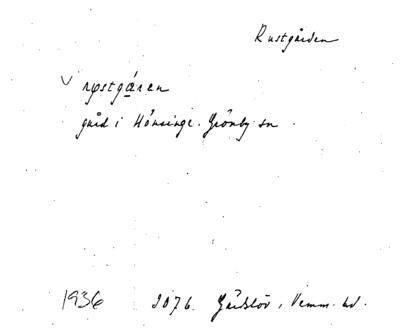 Rustgården
rųstgá̱ren
gård i Hönsinge. Grönby sn
1936 3076. Gärdslöv, Vemm. hd.